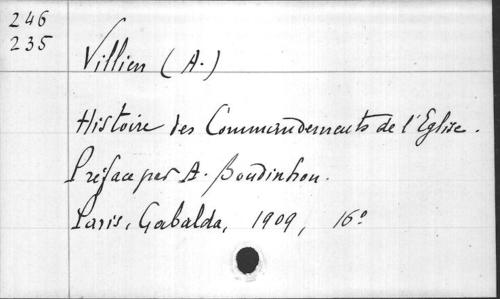 246
235
Villien (A.)
Histoire des Commandements de l'Eglise.
Préface par A. Boudinhon.
Paris, Gabalda, 1909, 16º